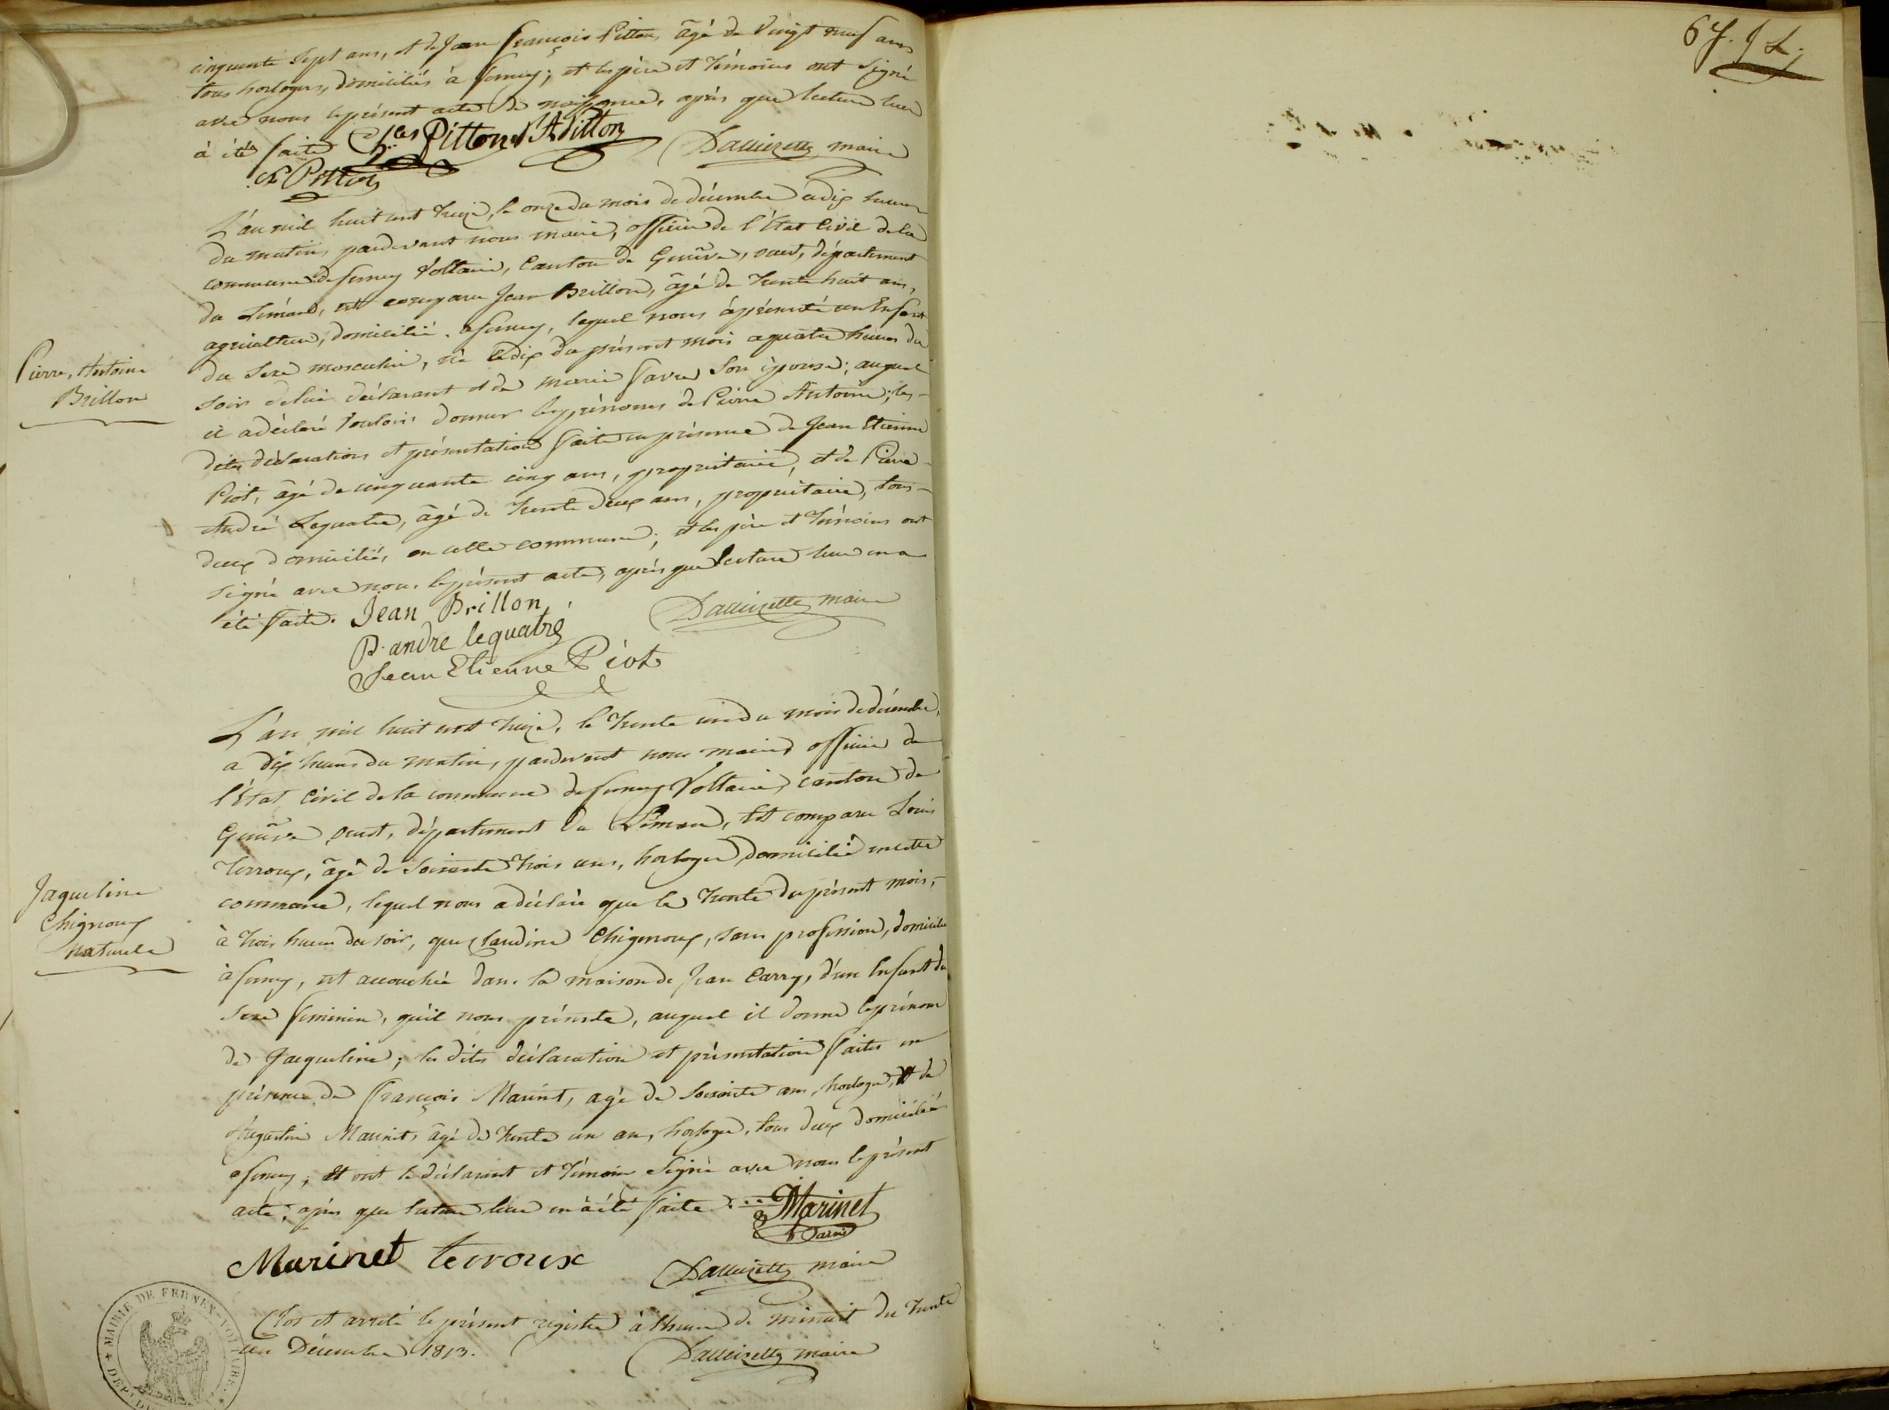 cinquante sept ans, et de Jean François Pitton, âgé de vingt neuf ans
tous horlogers, domiciliés à ferney; et les père et témoins ont signé
avec nous le présent acte de naissance, après que lecture leur
à été faite Pitton Pitton
maire
Pitton
L'an mil huit cent treize, le onze du mois de décembre à dix heures
du matin, pardevant nous maire, officier de l'état Civil de la
commune de ferney Voltaire, Canton de Genève, ouest, département
du Léman, est comparu Jean Brillon, âgé de trente huit ans,
agriculteur, domicilié à ferney, lequel nous à présenté un Enfant
du sexe masculin, né le dix du présent mois à quatre heures du
Pierre, Antoine
Brillon
soir de lui déclarant et de marie favre son épouse; auquel
il a déclaré vouloir donner les prénoms de Pierre Antoine; les-
dites déclaration et présentation faite en présence de Jean Etienne
Piot, âgé de cinquante cinq ans, propriétaire, et de Pierre-
André Lequatre, âgé de trente deux ans, propriétaire, tous-
deux domiciliés en cette commune; et les père et témoins ont
signé avec nous le présent acte, après que lecture leur en a
été faite. Jean Brillon
maire
P. andre lequatre
Jean Etienne Piot
L'an mil huit cent treize, le trente un du mois de décembre,
a dix heures du matin, pardevant nous maire officier de
l'état Civil de la commune de ferney Voltaire, canton de
Genève ouest, département du Léman, Est comparu Louis
Terroux, âgé de soixante trois ans, horloger, domicilié en cette
commune, lequel nous a déclaré que le trente du présent mois,
Jaqueline
Chignoux
Naturele
à trois heures du soir, que Claudine Chignoux, sans profession, domiciliée
à ferney, est accouchée dans la maison de Jean Carry, d'un Enfant du
sexe feminin, qu'il nous présente, auquel il donne le prénom
de Jacqueline; les dites déclaration et présentation faites en
présence de François Marinet, agé de soixante ans, horloger, et de
Augustin Marinet, âgé de trente un an, horloger, tous deux domiciliés
a ferney; et ont le déclarant et témoins signé avec nous le présent
acte; après que lecture leur en à été faite. Marinet
Marinet terroux
maire
Clos et arrêté le présent registre à l'heure de minuit du trente
un Décembre 1813.
maire
MAIRIE DE FERNEX-VOLTAIRE
67.